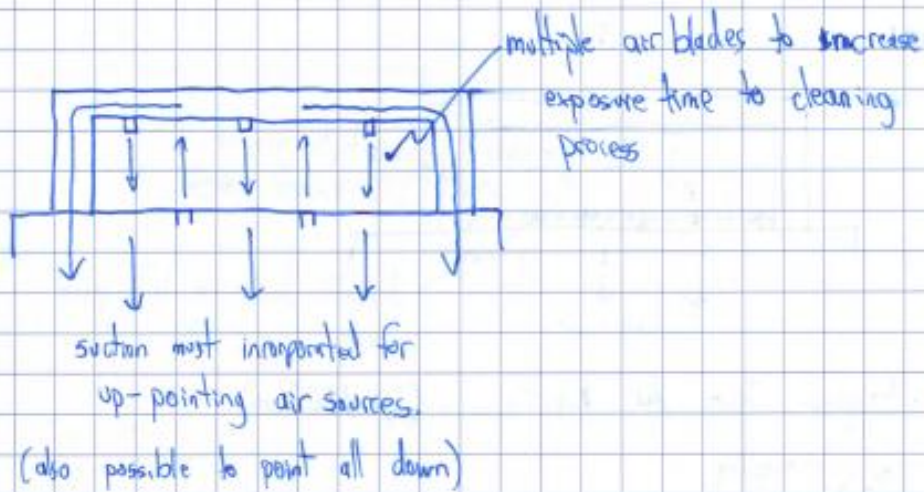 multiple air blades to increase
exposure time to cleaning
process
suction must incorporated for
up-pointing air sources.
(also possible to point all down)